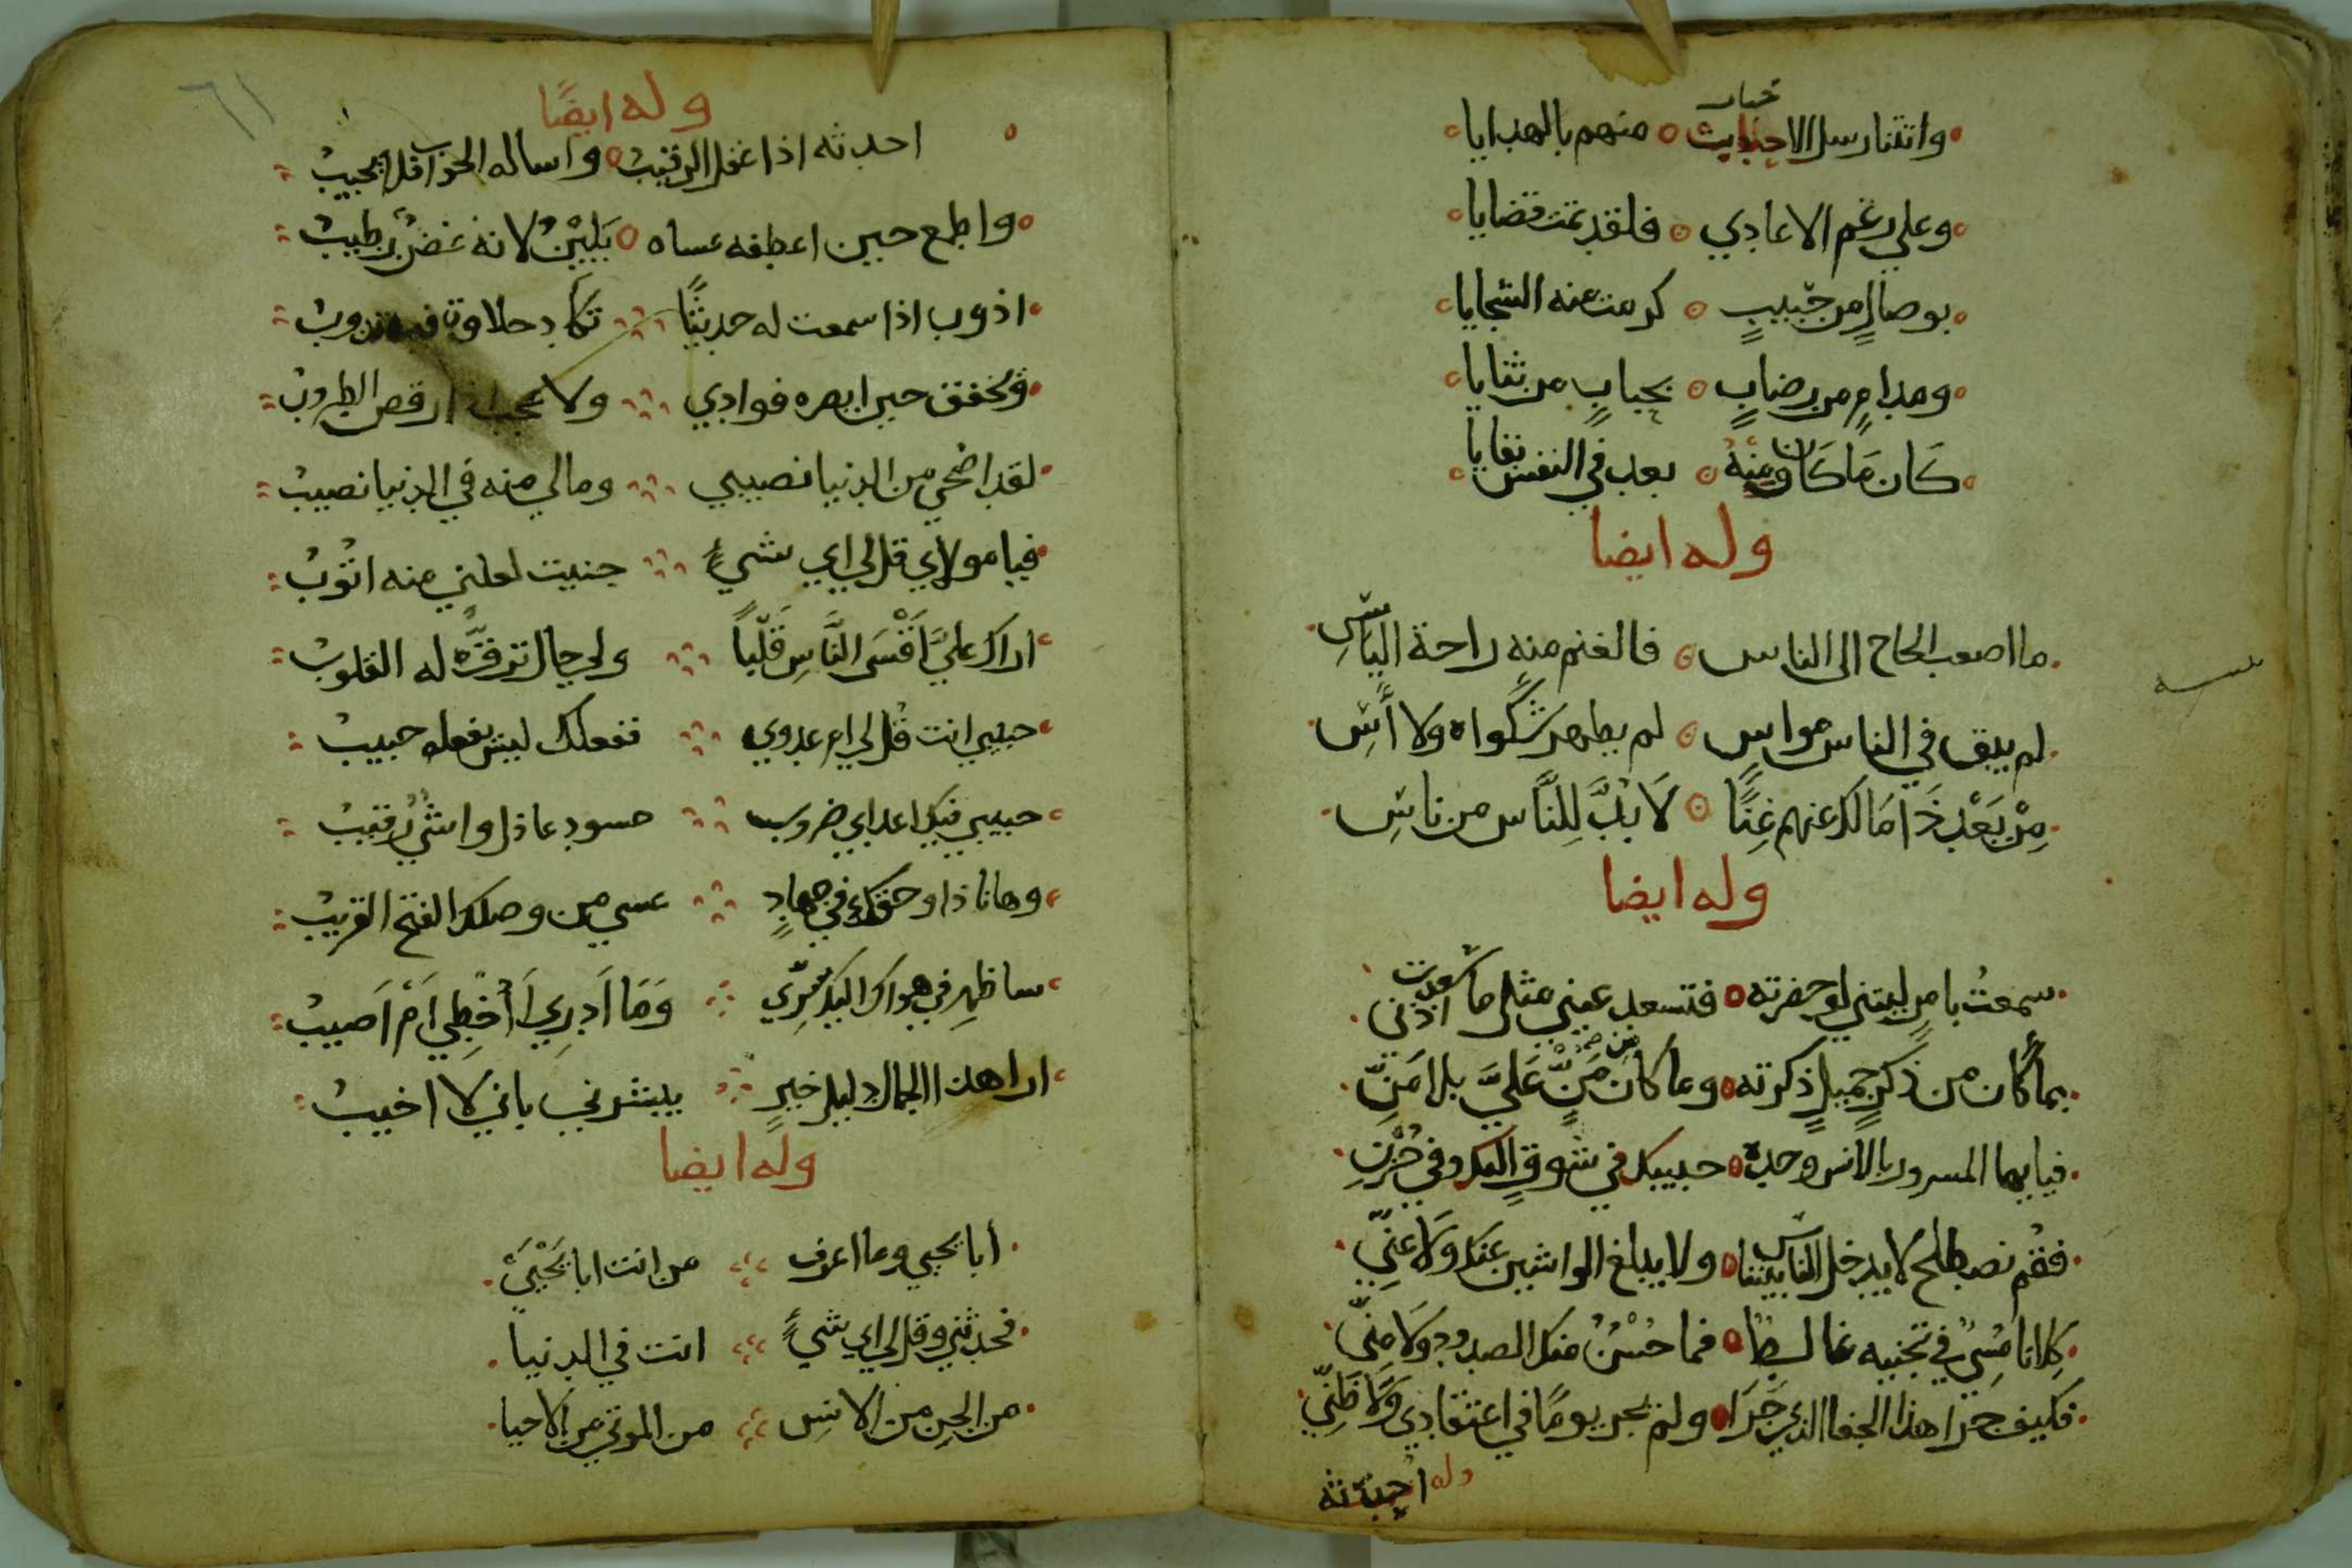 واتتنا رسل الاحباب منهم بالهدايا
وعلي رغم الاعادي فلقد تمت قضايا
بوصالٍ من حبيبٍ كرمت منه السجايا
ومدامٍ من رضابٍ بحبابٍ من ثنايا
كَان مَا كَان ومنه بعد في النفس بقايا
وله ايضا
ما اصعب الحاج الى الناس فالغنم منه راحة الياسِ
لم يبق في الناس مواسٍ لم يظهر شكواه ولا أَسِ
مِنْ بَعْد ذَا مَا لك عنهم غِنًا لَا بُدَّ لِلنَّاس من ناسِ
وله ايضا
سمعتُ بامرٍ ليتني لو حضرته فتسعد عيني مثل ما سعدت اذني
بما كان من ذكرٍ جميلٍ ذكرته وما كان من مَنٍّ عَليَّ بلا مَنِّ
فيا ايها المسرور بالانس وحده حبيبك في شوقٍ اليك وفي حُزْنِ
فقم نصطلح لا يدخل الناس بيننا ولا يبلغ الواشين عنك ولا عنِّي
كِلانا مُسِيٌ في تجنيه غالطا فما حُسْنٌ منك الصدود ولا مِنِّي
فكيف جرا هذا الجفا الذي جَرَا ولم يجر يومًا في اعتقادي ولا ظَنِّي
وله احدثه
٦١
وله ايضًا
احدثه اذا غفل الرقيبُ واساله الجواب فلا يجيبُ
واطمع حين اعطفه عساه يَلِيْنُ لانه غضنٌ رطيبُ
اذوب اذا سمعت له حديثًا تكاد حلاوة فيه تذوبُ
ويخفق حين ابصره فوادي ولا عجب اذا رقص الطروبُ
لقد اضحي من الدنيا نصيبي ومالي منه في الدنيا نصيبُ
فيا مولاي قل لي اي شيءٍ جنيت لعلني منه اتوبُ
اراك عليَّ اَقْسَى النَّاسِ قَلْباً ولي حال ترقُّ له القلوبُ
حبيبي انت قُل لي ام عدوي ففعلك ليس يفعله حبيبُ
حبيبي فيك اعداي ضروب حسود عاذل واشيٌ رقيبُ
وها انا ذا وحقك في جهادٍ عسي من وصلك الفتح القريبُ
ساظهر في هواك اليك سِرِّي وَمَا اَدرِي أَأُخْطِي اَمْ اَصيبُ
ارا هذا الجمال دليل خيرٍ يبشرني باني لا اخيبُ
وله ايضا
أبا يحيي وما اعرف من انت ابا يَحْيَىَ
فحدثني وقل لي اي شيءٍ انت في الدنيا
من الجن من الانسِ من الموتي من الاحيا